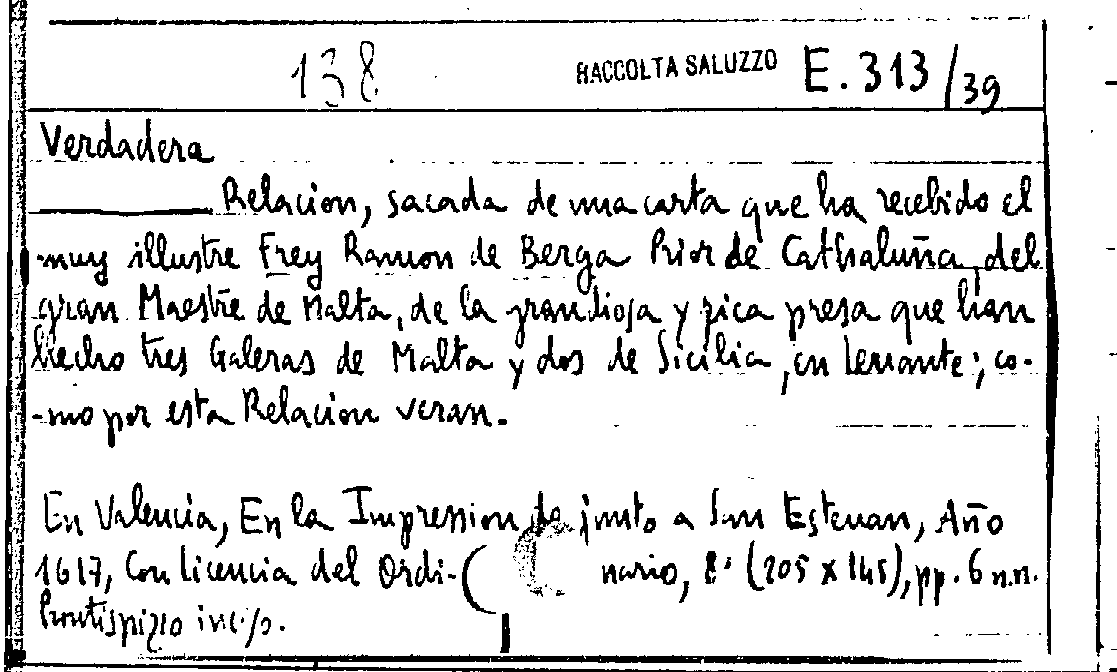 138 RACCOLTA SALUZZO E.313/39
Verdadera
Relacion, sacada de una carta que ha recebido el
muy illustre Frey Ramon de Berga Prior de Cathaluña, del
gran Maestre de Malta, de la grandiosa y rica presa que han
hecho tres Galeras de Malta y dos de Sicilia, en Leuante; co-
-mo por esta Relacion veran.
En Valencia, En la Impression de junto a San Esteuan, Año
1617, Con licencia del Ordi-nario, 8° (205 x 145), pp. 6 n.n.
Frontispizio inciso.